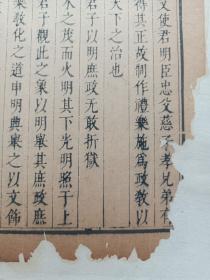 文使君明臣忠父慈子孝兄弟有
得其正故制作禮樂施為政教以
天下之治也
君子以明庶政无敢折獄
火之茂而火明其下光明照于上
君子觀此之象以明舉其庶政庶
象教化之道申明典章之以文飾